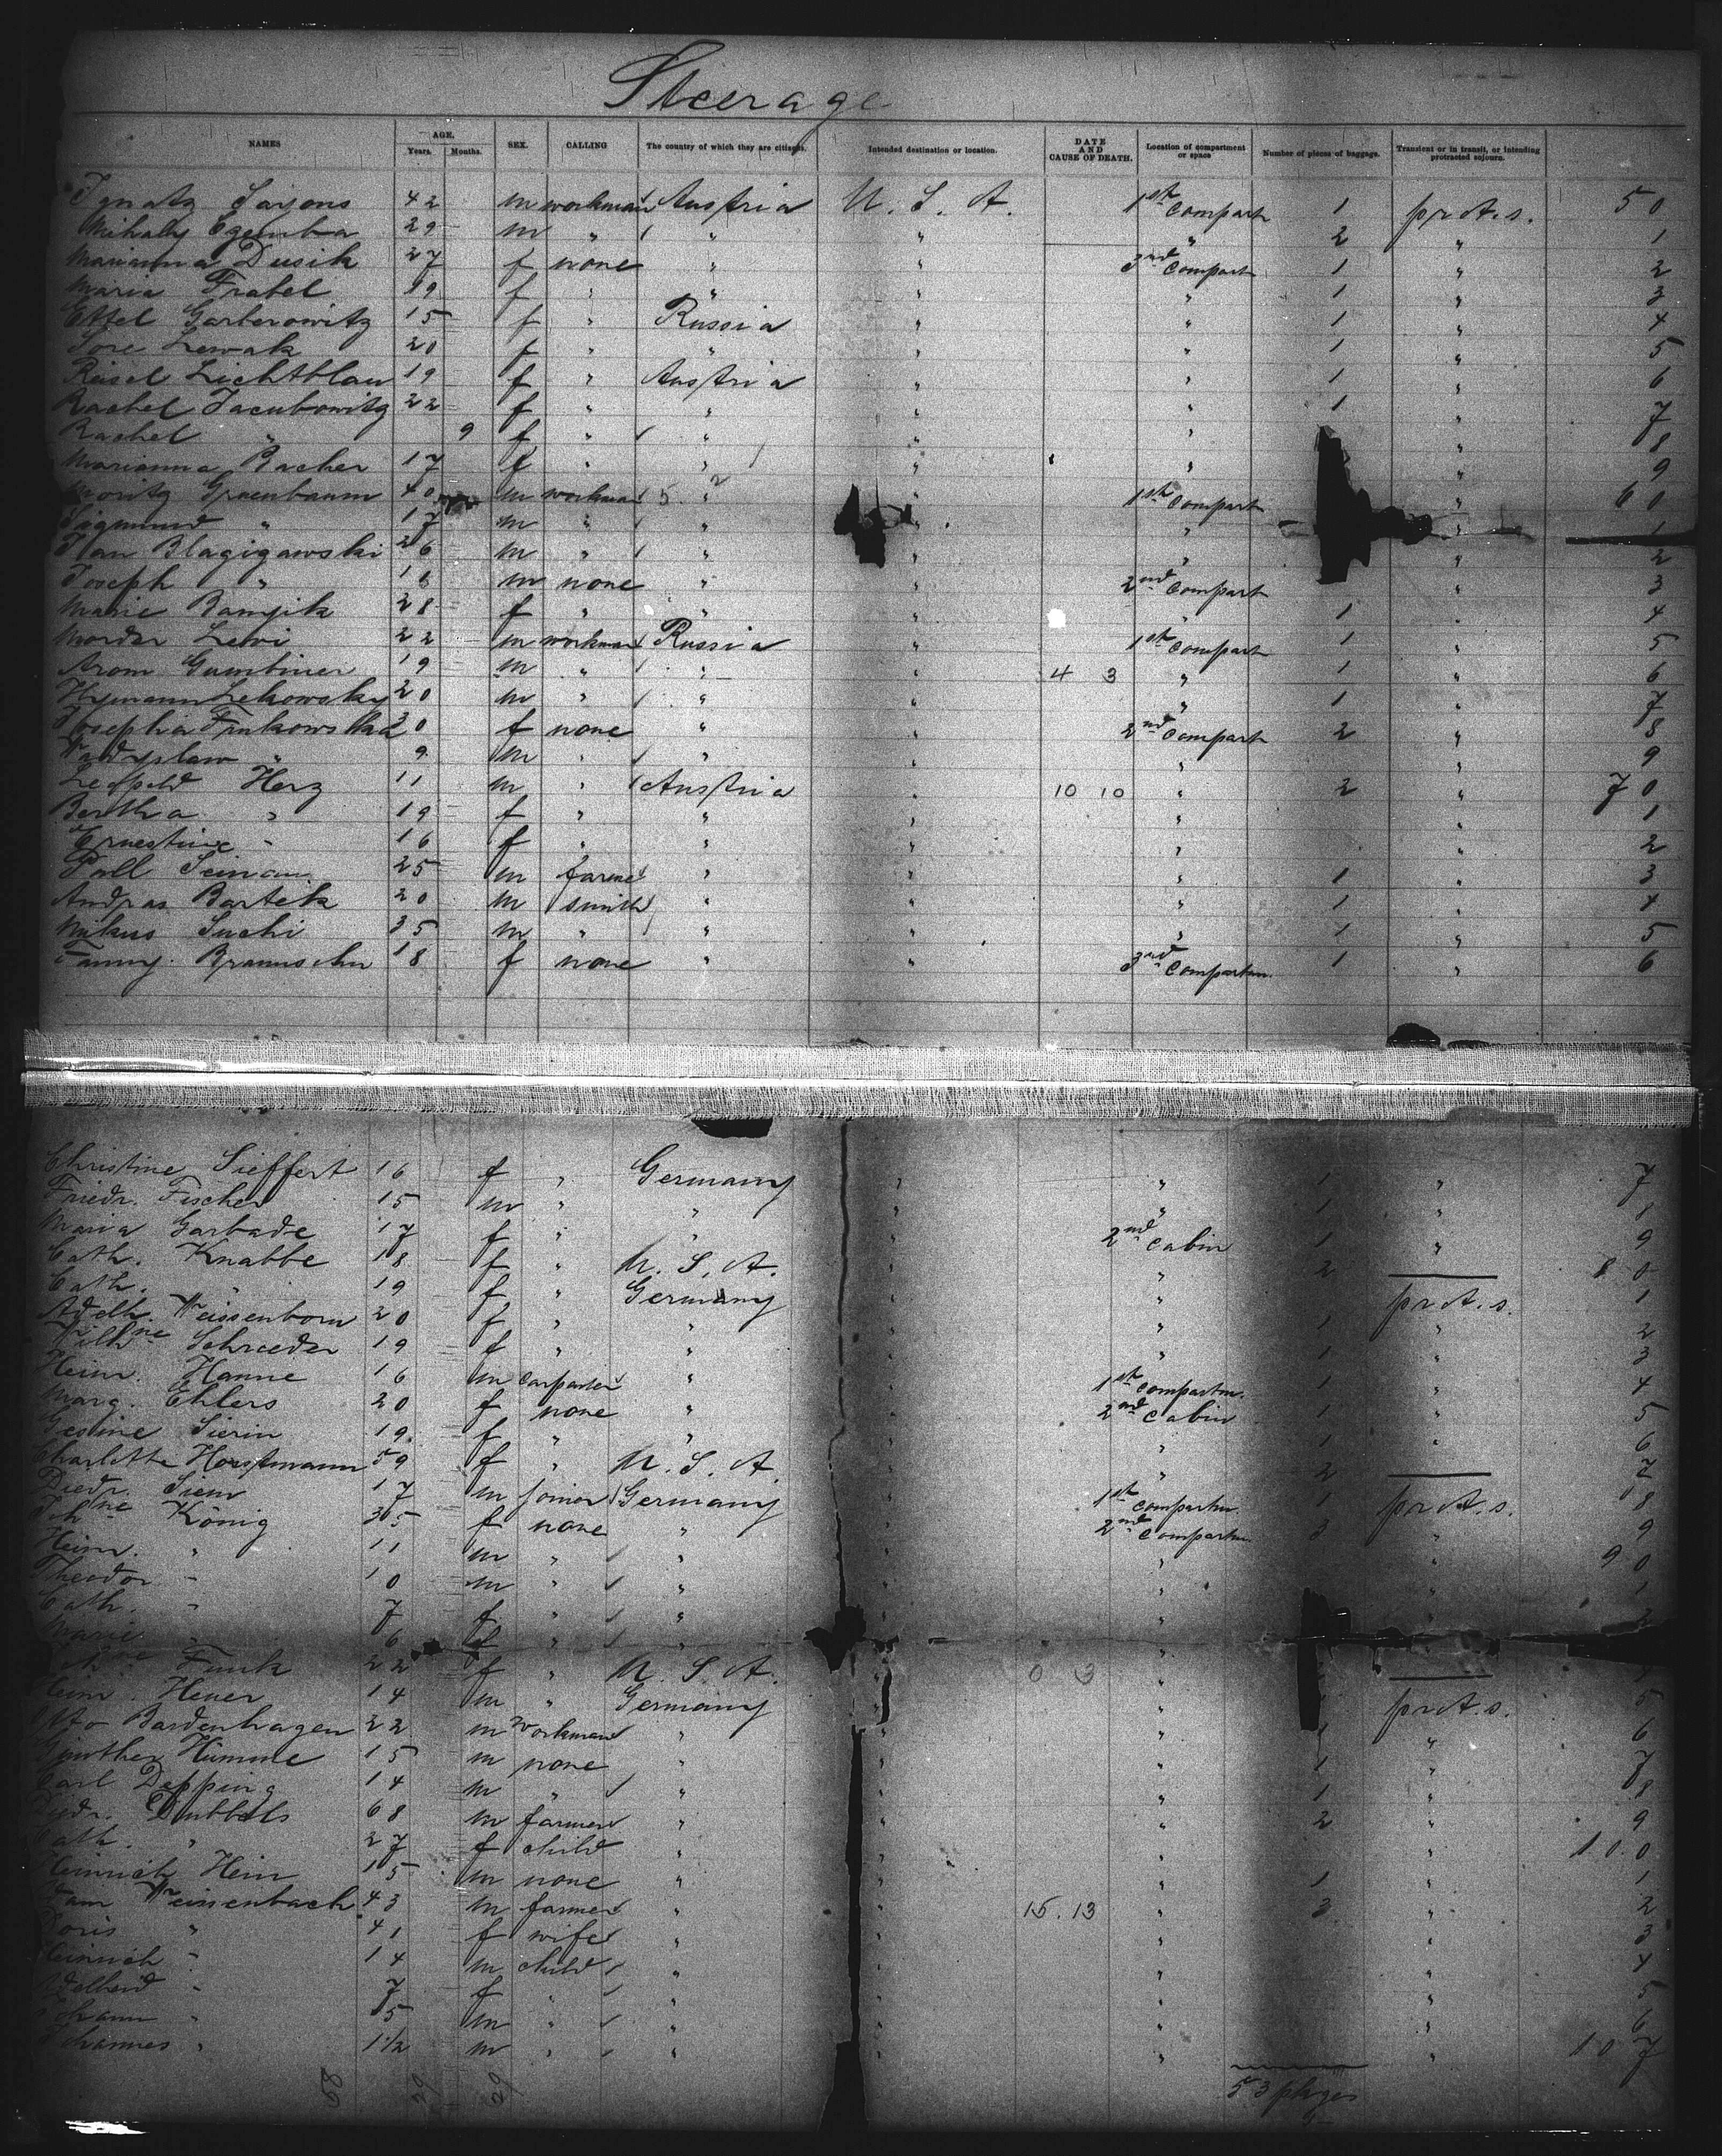 Steerage
NAMES AGE. Years. Months. SEX. CALLING The country of which they are citizens. Intended destination or location. DATE AND CAUSE OF DEATH. Location of compartment or space Number of pieces of baggage. Transient or in transit, or intending protracted sojourn.
Ignatz 42 m workman Austria U. S. A. 1st Compart 1 prot. s. 50
Mihaly 29 m " " " " 2 " 1
Marianna Dusik 27 f none " " 3rd Compart 1 " 2
Maria Frabel 19 f " " " " 1 " 3
Ettel Garberowitz 15 f " Russia " " 1 " 4
Lewak 20 f " " " " 1 " 5
Lichtblau 19 f " Austria " " 1 " 6
Rachel Jacubowitz 22 f " " " " 1 " 7
Rachel " 9 f " " " " " 8
Marianna Bacher 17 f " " " " " 9
Moritz Gruenbaum 40 m workman " " 1st Compart " 60
Sigmund " 17 m " " " " " 1
Blagigawski 26 m " " " " " 2
Joseph " m none " " 2nd Compart " 3
Marie 28 f " " " " 1 " 4
Lewi 22 m workman Russia " 1st Compart 1 " 5
Arom Gumbiner 19 m " " " 4 3 " 1 " 6
Hymann Lekowsky 20 m " " " " 1 " 7
Josepha Finkowska 30 f none " " 2nd Compart 2 " 8
Wladyslaw " 9 m " " " " " 9
Leopold Herz 11 m " Austria " 10 10 " 2 " 70
Bertha " 19 f " " " " " 1
Ernestine " 16 f " " " " " 2
25 m farmer " " " 1 " 3
Andras Bartek 20 m smith " " " 1 " 4
Suchi 35 m " " " " 1 " 5
Fanny 18 f none " " 3rd Compartm. 1 " 6
Christine Sieffert 16 f " Germany " " 1 " 7
Friedr. Fischer 15 m " " " " 1 " 8
Maria Garbade 17 f " " " 2nd Cabin 1 " 9
Cath. Knabbe 18 f " U. S. A. " " 2 — 80
Cath. " 19 f " Germany " " prot. s. 1
Adelh. Weissenborn 20 f " " " " 1 " 2
Wilhne Schroeder 19 f " " " " 1 " 3
Heinr. Hanne 16 m carpenter " " 1st compartm. 1 " 4
Marg. Ehlers 20 f none " " 2nd Cabin 1 " 5
Gesine Sierin 19 f " " " " 1 " 6
Charlotte Horstmann 59 f " U. S. A. " " 2 — 7
Diedr. Siem 17 m joiner Germany " 1st compartm. 1 prot. s. 8
Johne König 35 f none " " 2nd compartm 3 " 9
Heinr. " 11 m " " " " " 90
Theodor " 10 m " " " " " 1
Cath. " 7 f " " " " " 2
Marie " 6 f " " " "
Funk 22 f " U. S. A. " 0 3 " —
Heinr. Heuer 14 m " Germany " " prot. s. 5
Otto Bardenhagen 22 m Workman " " " 1 " 6
Günther Hümme 15 m none " " " 1 " 7
Carl Depping 14 m " " " " 1 " 8
Diedr. Dubbels 68 m farmer " " " 2 " 9
Cath. " 27 f child " " " " 100
Heinrich Hein 15 m none " " " 1 " 1
Adam Weissenbach 43 m farmer " " 15. 13 " 3 " 2
Doris " 41 f wife " " " " 3
Heinrich " 14 m child " " " " 4
Adelheid " 7 f " " " " " 5
Johann " 5 m " " " " " 6
Johannes " 1 1/2 m " " " " " 107
58 29 29 53 pkges